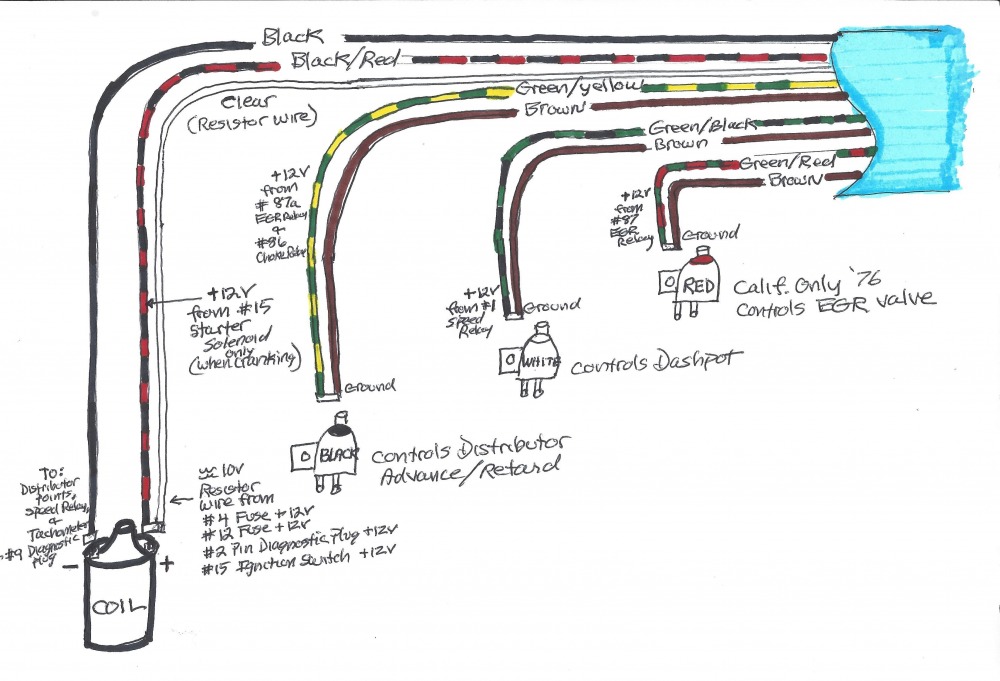 Black
Black/Red
Clear
(Resistor wire)
Green/yellow
Brown
Green/Black
Brown
Green/Red
Brown
+12V
from
# 87a
EGR Relay
&
#86
Choke Relay
+12V
from
#87
EGR
Relay
Ground
RED
Calif. Only '76
Controls EGR valve
+12V
from #15
Starter
Solenoid
only
(when cranking)
+12V
from #1
Speed
Relay
Ground
WHITE
Controls Dashpot
Ground
BLACK
Controls Distributor
Advance/Retard
To:
Distributor
points,
Speed Relay,
&
Tachometer
#9 Diagnostic
plug
10V
Resistor
wire from
#4 Fuse +12V
#12 Fuse +12V
#2 Pin Diagnostic Plug +12V
#15 Ignition Switch +12V
- +
COIL